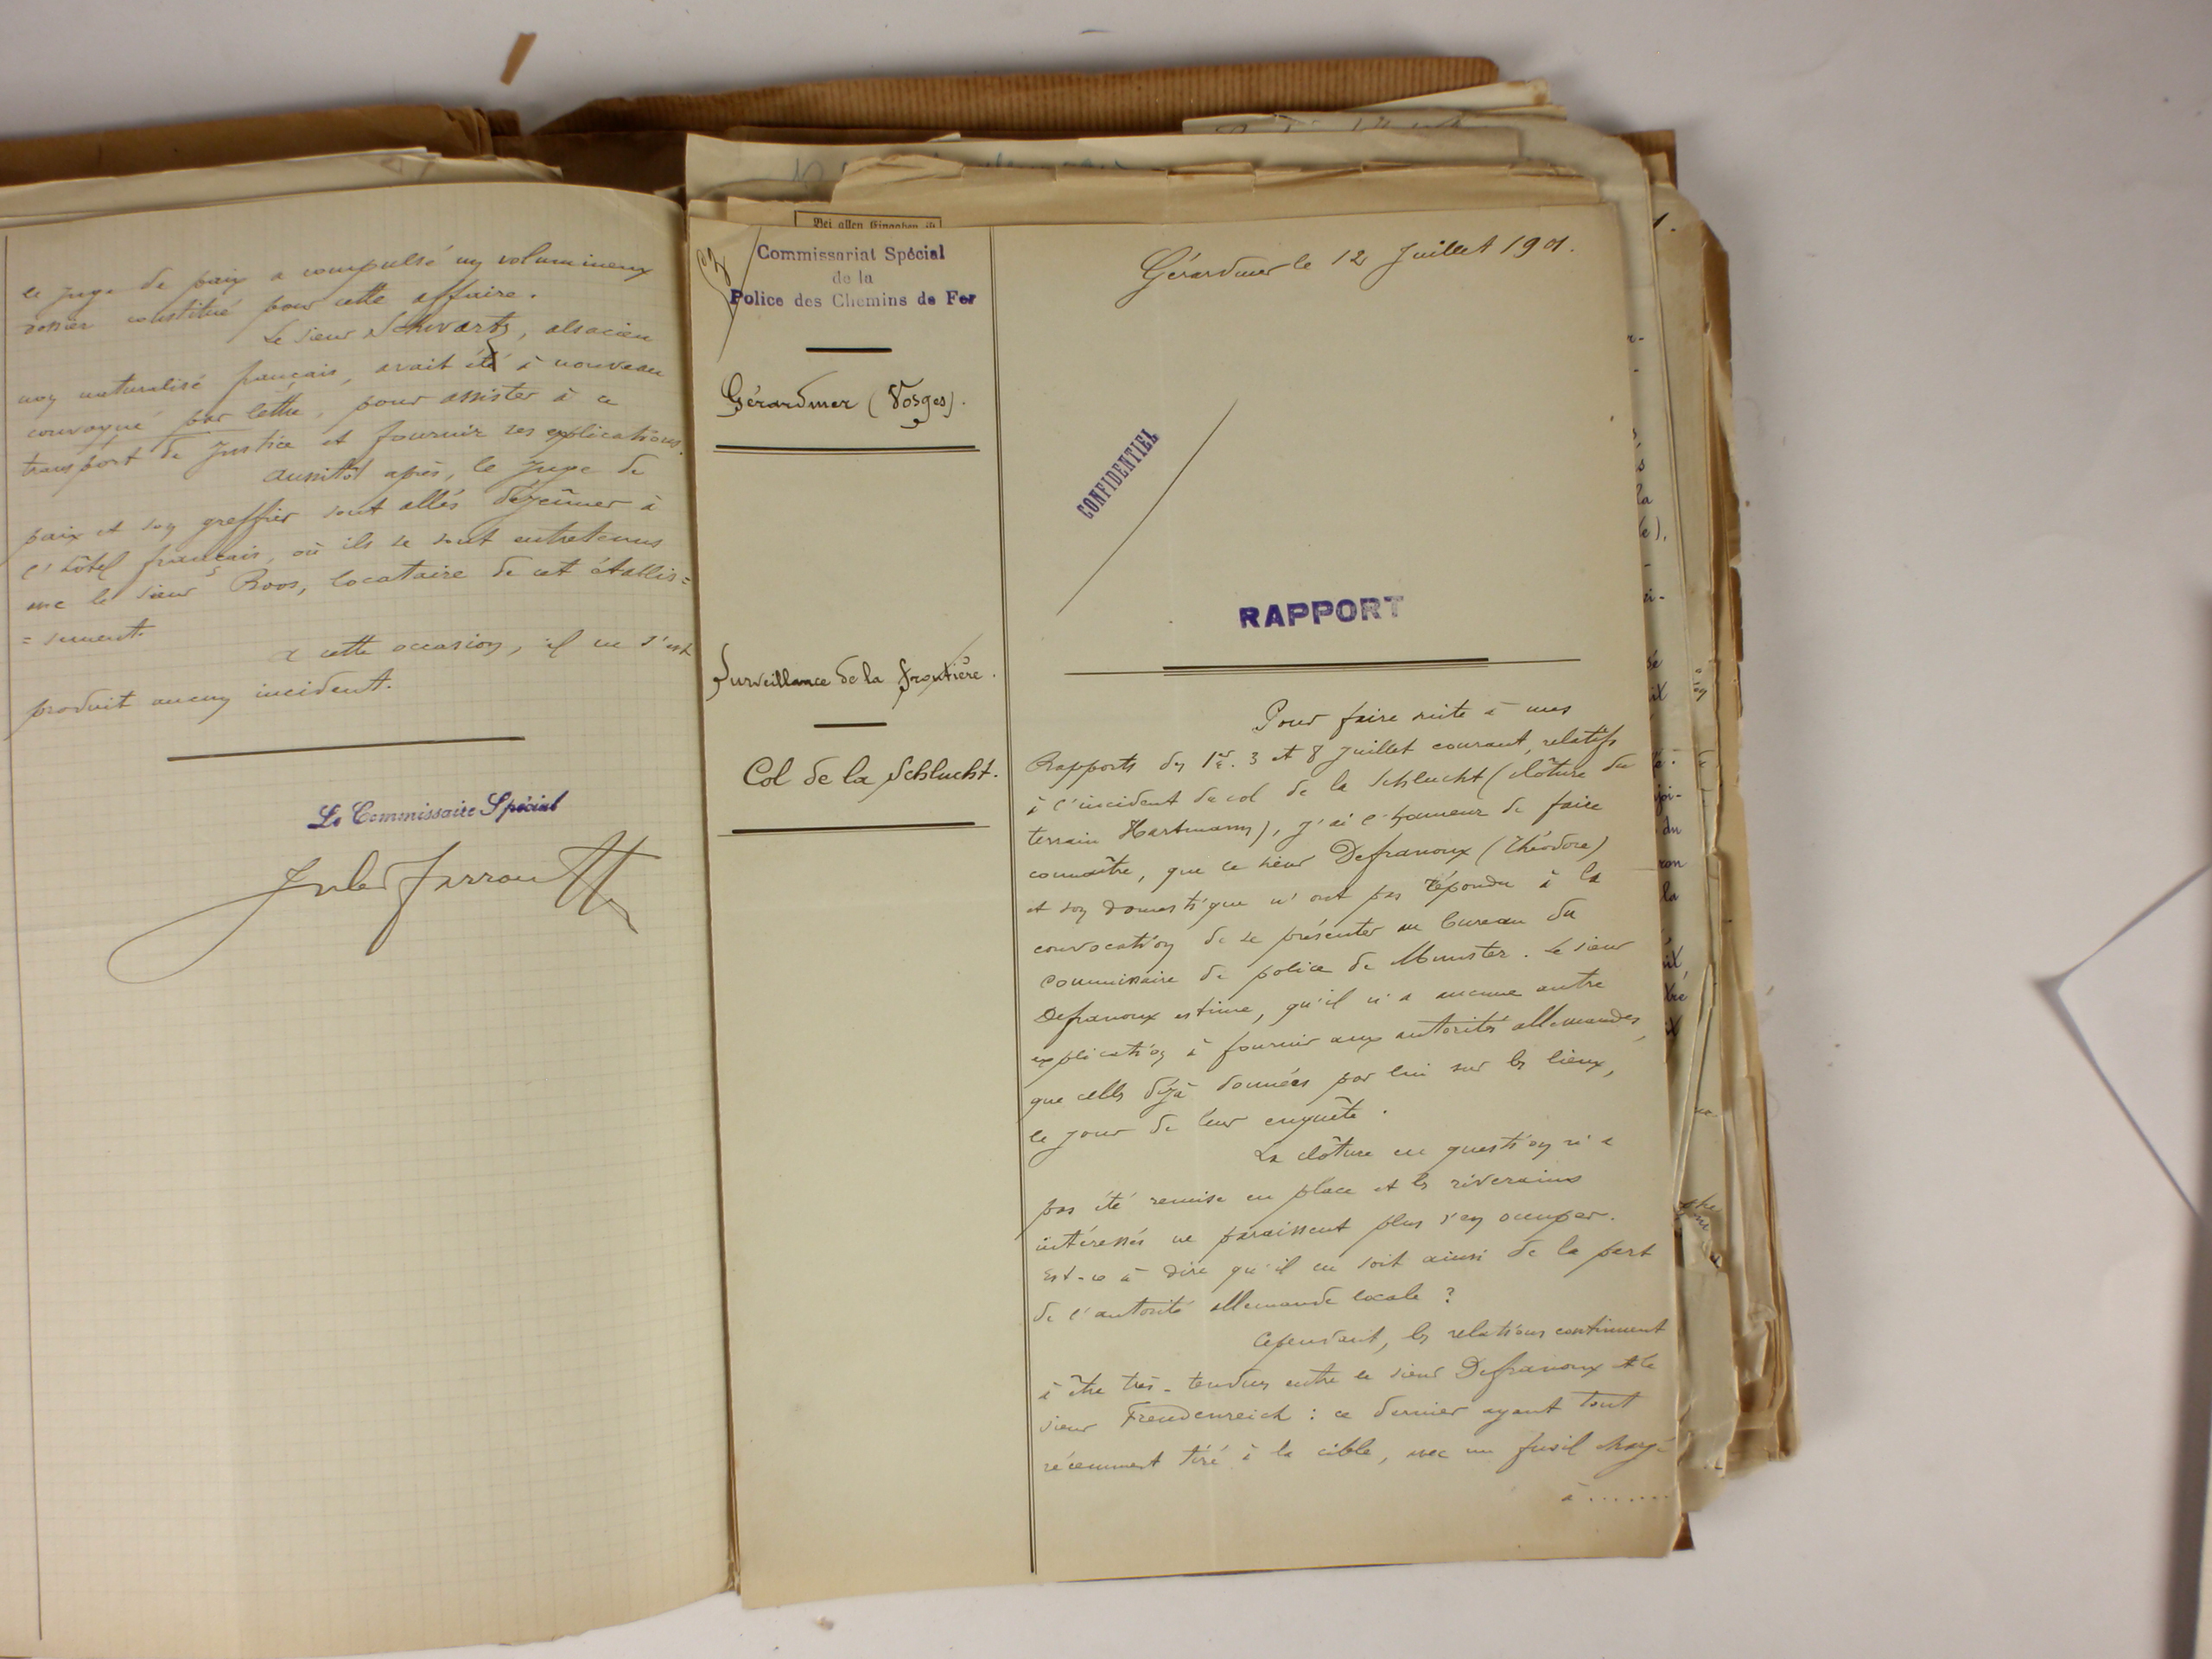 le juge de paix a compulsé un volumineux
dossier constitué pour cette affaire.
Le sieur Schvartz, alsacien
non naturalisé français, avait été à nouveau
convoqué par lettre, pour assister à ce
transport de Justice et fournir ses explications.
Aussitôt après, le Juge de
paix et son greffier sont allés déjeûner à
l'hôtel français, où ils se sont entretenus
avec le sieur Roos, locataire de cet établis=
=sement.
A cette occasion, il ne s'est
produit aucun incident.
Le Commissaire Spécial
Bei allen Eingaben ist
Commissariat Spécial
de la
Police des Chemins de Fer
Gérardmer (Vosges).
Surveillance de la frontière.
Col de la Schlucht.
Gérardmer le 12 Juillet 1901.
CONFIDENTIEL
RAPPORT
Pour faire suite à mes
Rapports des 1er. 3 et 8 Juillet courant, relatifs
à l'incident du col de la Schlucht (clôture du
terrain Hartmann), j'ai l'honneur de faire
connaître, que le sieur Defranoux (Théodore)
et son domestique n'ont pas répondu à la
convocation de se présenter au bureau du
Commissaire de police de Munster. Le sieur
Defranoux estime, qu'il n'a aucune autre
explication à fournir aux autorités allemandes,
que celles déjà données par lui sur les lieux,
le jour de leur enquête.
La clôture en question n'a
pas été remise en place et les riverains
intéressés ne paraissent plus s'en occuper.
Est-ce à dire qu'il en soit ainsi de la part
de l'autorité allemande locale ?
Cependant, les relations continuent
à être très-tendues entre le sieur Defranoux et le
sieur Freudenreich : ce dernier ayant tout
récemment tiré à la cible, avec un fusil chargé
à .......